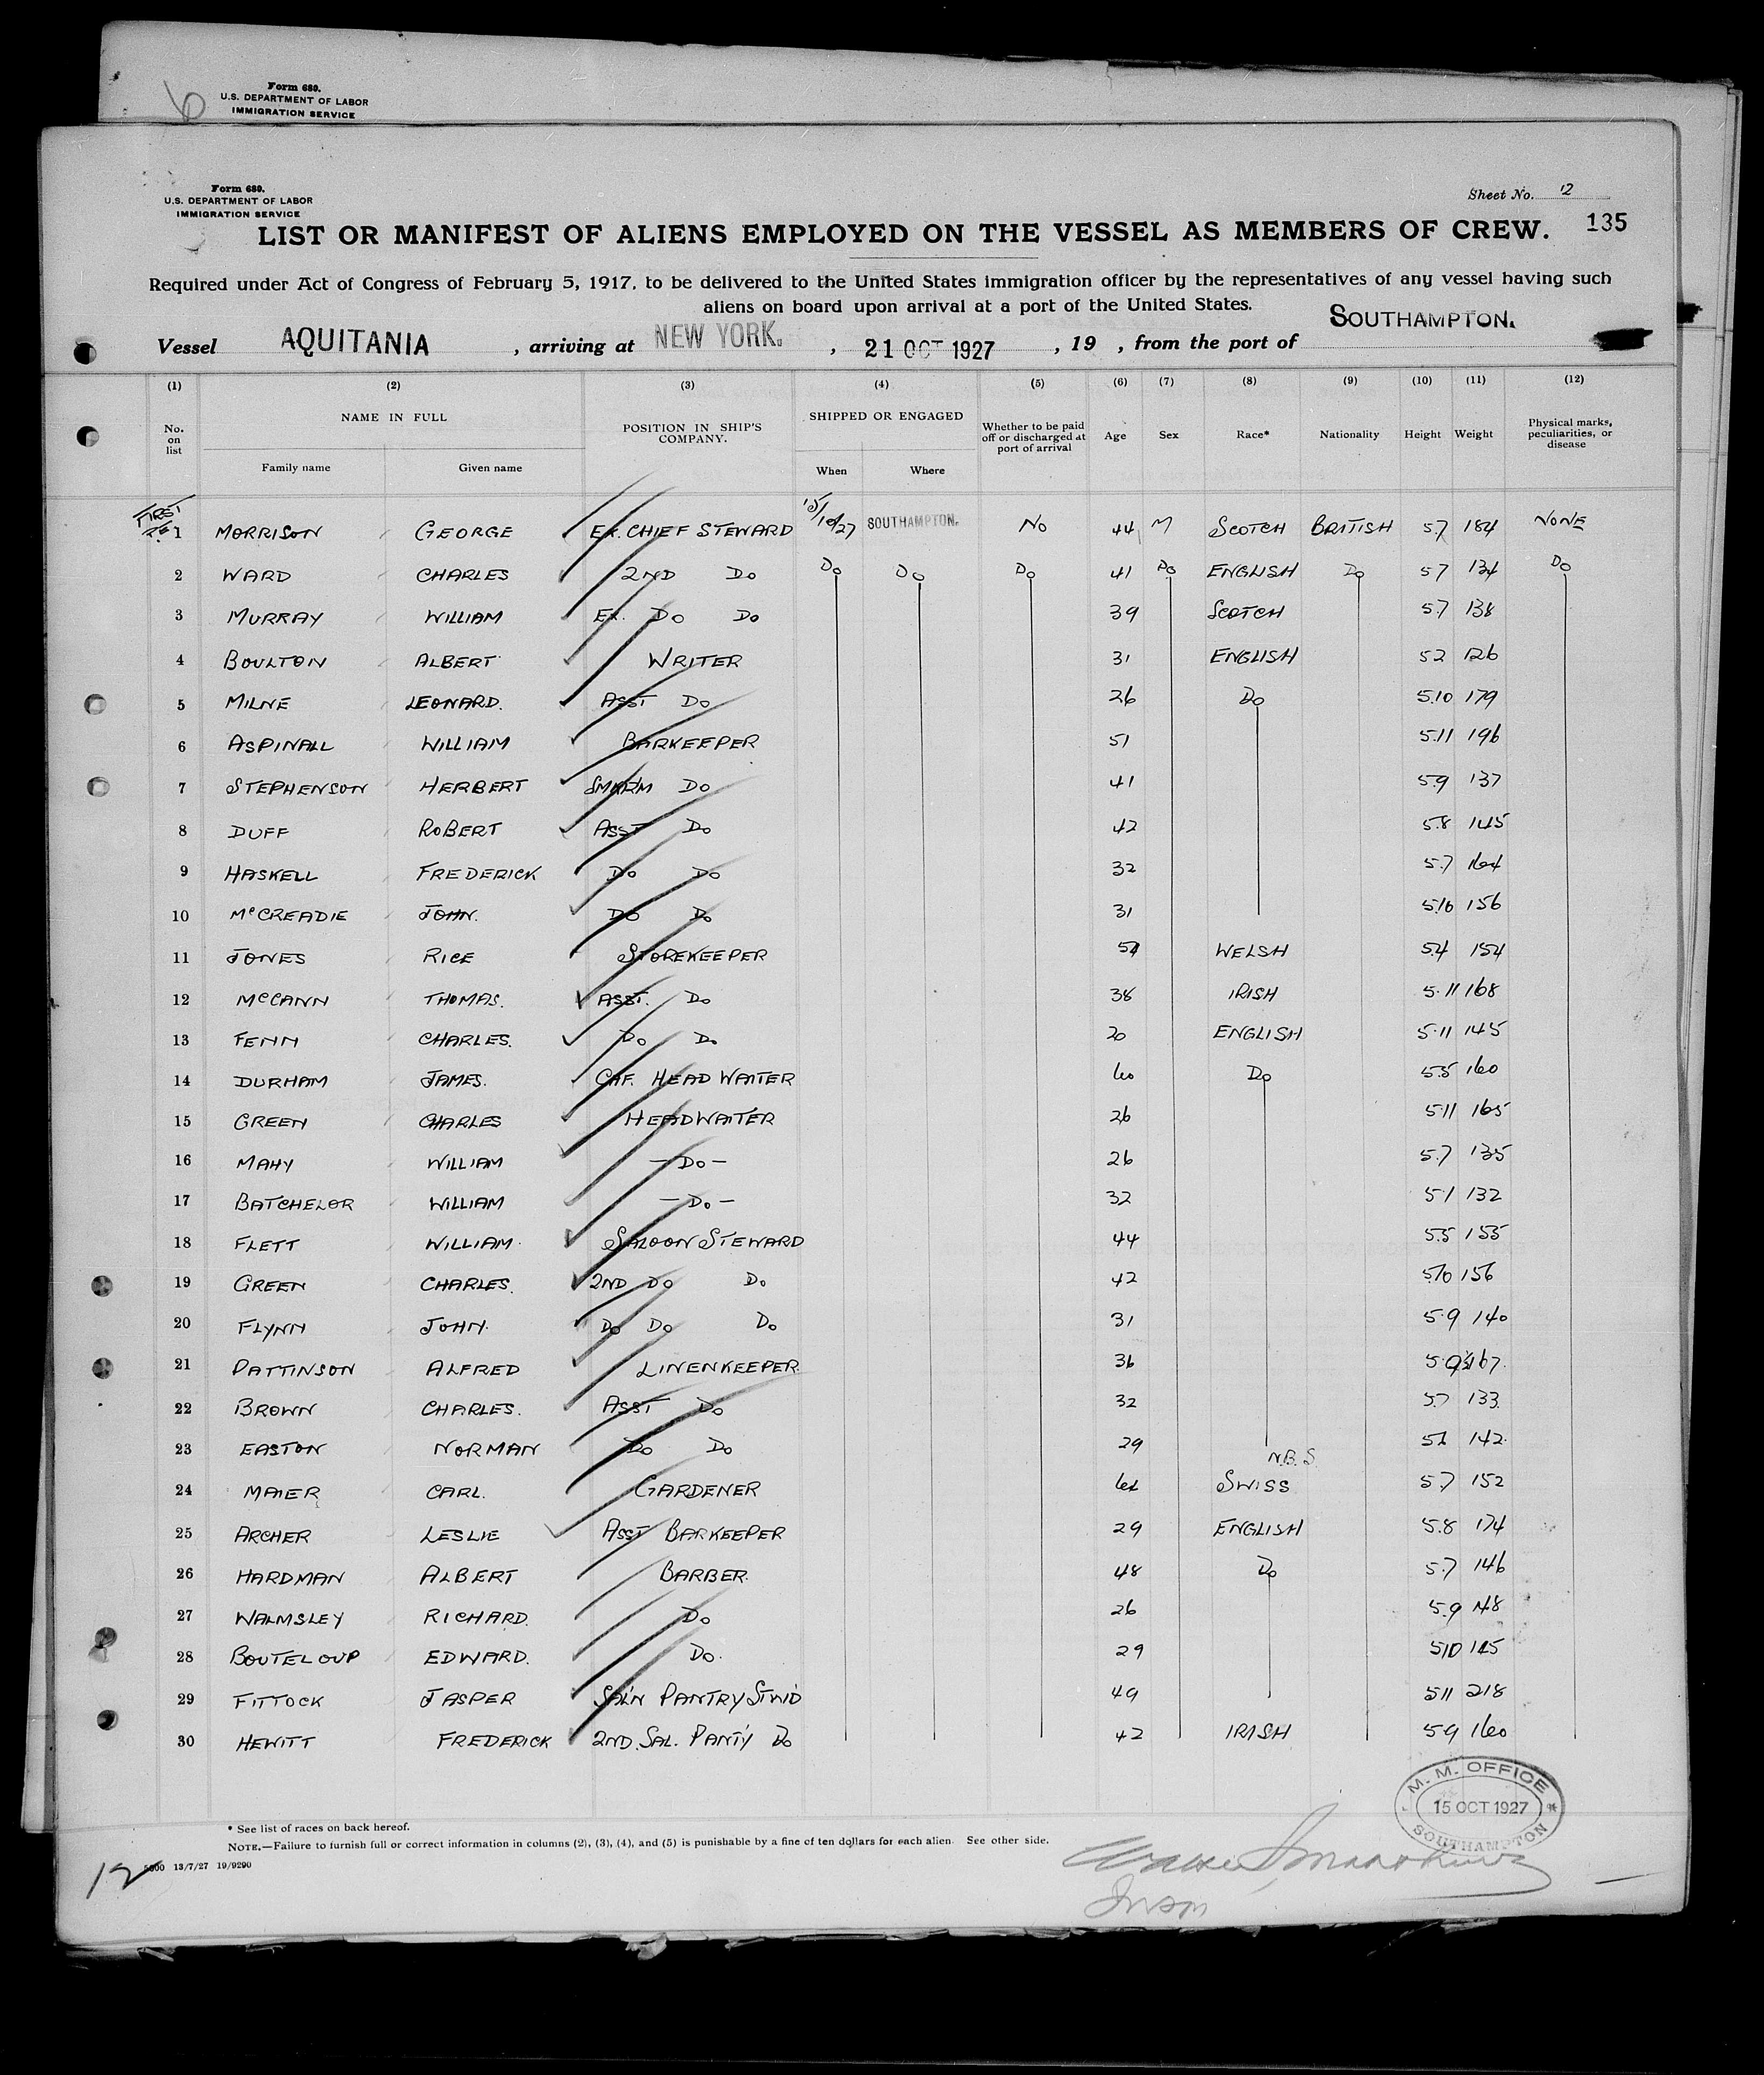 Form 680.
U.S. DEPARTMENT OF LABOR
IMMIGRATION SERVICE
Form 680.
U.S. DEPARTMENT OF LABOR
IMMIGRATION SERVICE
Sheet No. 12
135
LIST OR MANIFEST OF ALIENS EMPLOYED ON THE VESSEL AS MEMBERS OF CREW.
Required under Act of Congress of February 5, 1917, to be delivered to the United States immigration officer by the representatives of any vessel having such
aliens on board upon arrival at a port of the United States.
Vessel AQUITANIA, arriving at NEW YORK., 21 OCT 1927, 19 , from the port of SOUTHAMPTON.
(1) (2) (3) (4) (5) (6) (7) (8) (9) (10) (11) (12)
No. on list NAME IN FULL Family name Given name POSITION IN SHIP'S COMPANY. SHIPPED OR ENGAGED When Where Whether to be paid off or discharged at port of arrival Age Sex Race* Nationality Height Weight Physical marks, peculiarities, or disease
FIRST
1 MORRISON GEORGE EX. CHIEF STEWARD 15/10/27 SOUTHAMPTON. NO 44 M SCOTCH BRITISH 5.7 184 NONE
2 WARD CHARLES 2ND DO DO DO DO 41 DO ENGLISH DO 57 134 DO
3 MURRAY WILLIAM EX. DO DO 39 SCOTCH 5.7 138
4 BOULTON ALBERT WRITER 31 ENGLISH 52 126
5 MILNE LEONARD. ASST DO 26 DO 5.10 179
6 ASPINALL WILLIAM BARKEEPER 51 5.11 196
7 STEPHENSON HERBERT SMKRM DO 41 5.9 137
8 DUFF ROBERT ASST DO 42 5.8 145
9 HASKELL FREDERICK DO DO 32 5.7 164
10 McCREADIE JOHN. DO DO 31 5.10 156
11 JONES RICE STOREKEEPER WELSH 5.4 154
12 McCANN THOMAS. ASST. DO 38 IRISH 5.11 168
13 FENN CHARLES. DO DO 20 ENGLISH 5.11 145
14 DURHAM JAMES. CAF. HEAD WAITER 60 DO 5.5 160
15 GREEN CHARLES HEADWAITER 26 5.11 165
16 MAHY WILLIAM -DO- 26 5.7 135
17 BATCHELOR WILLIAM -DO- 32 5.1 132
18 FLETT WILLIAM. SALOON STEWARD 44 5.5 155
19 GREEN CHARLES. 2ND DO DO 42 5.10 156
20 FLYNN JOHN. DO DO DO 31 5.9 140
21 PATTINSON ALFRED LINENKEEPER 36 167.
22 BROWN CHARLES. ASST DO 32 5.7 133.
23 EASTON NORMAN DO DO 29 142.
N.B.S.
24 MAIER CARL. GARDENER SWISS 5.7 152
25 ARCHER LESLIE ASST BARKEEPER 29 ENGLISH 5.8 174
26 HARDMAN ALBERT BARBER. 48 DO 5.7 146
27 WALMSLEY RICHARD. DO 26 5.9 148
28 BOUTELOUP EDWARD. DO. 29 5.10
29 FITTOCK JASPER SAL'N PANTRY STW'D 49 5.11 218
30 HEWITT FREDERICK 2ND. SAL. PANT'Y DO 42 IRISH 5.9 160
M. M. OFFICE
15 OCT 1927
SOUTHAMPTON
* See list of races on back hereof.
NOTE.—Failure to furnish full or correct information in columns (2), (3), (4), and (5) is punishable by a fine of ten dollars for each alien. See other side.
13/7/27 19/9290
12